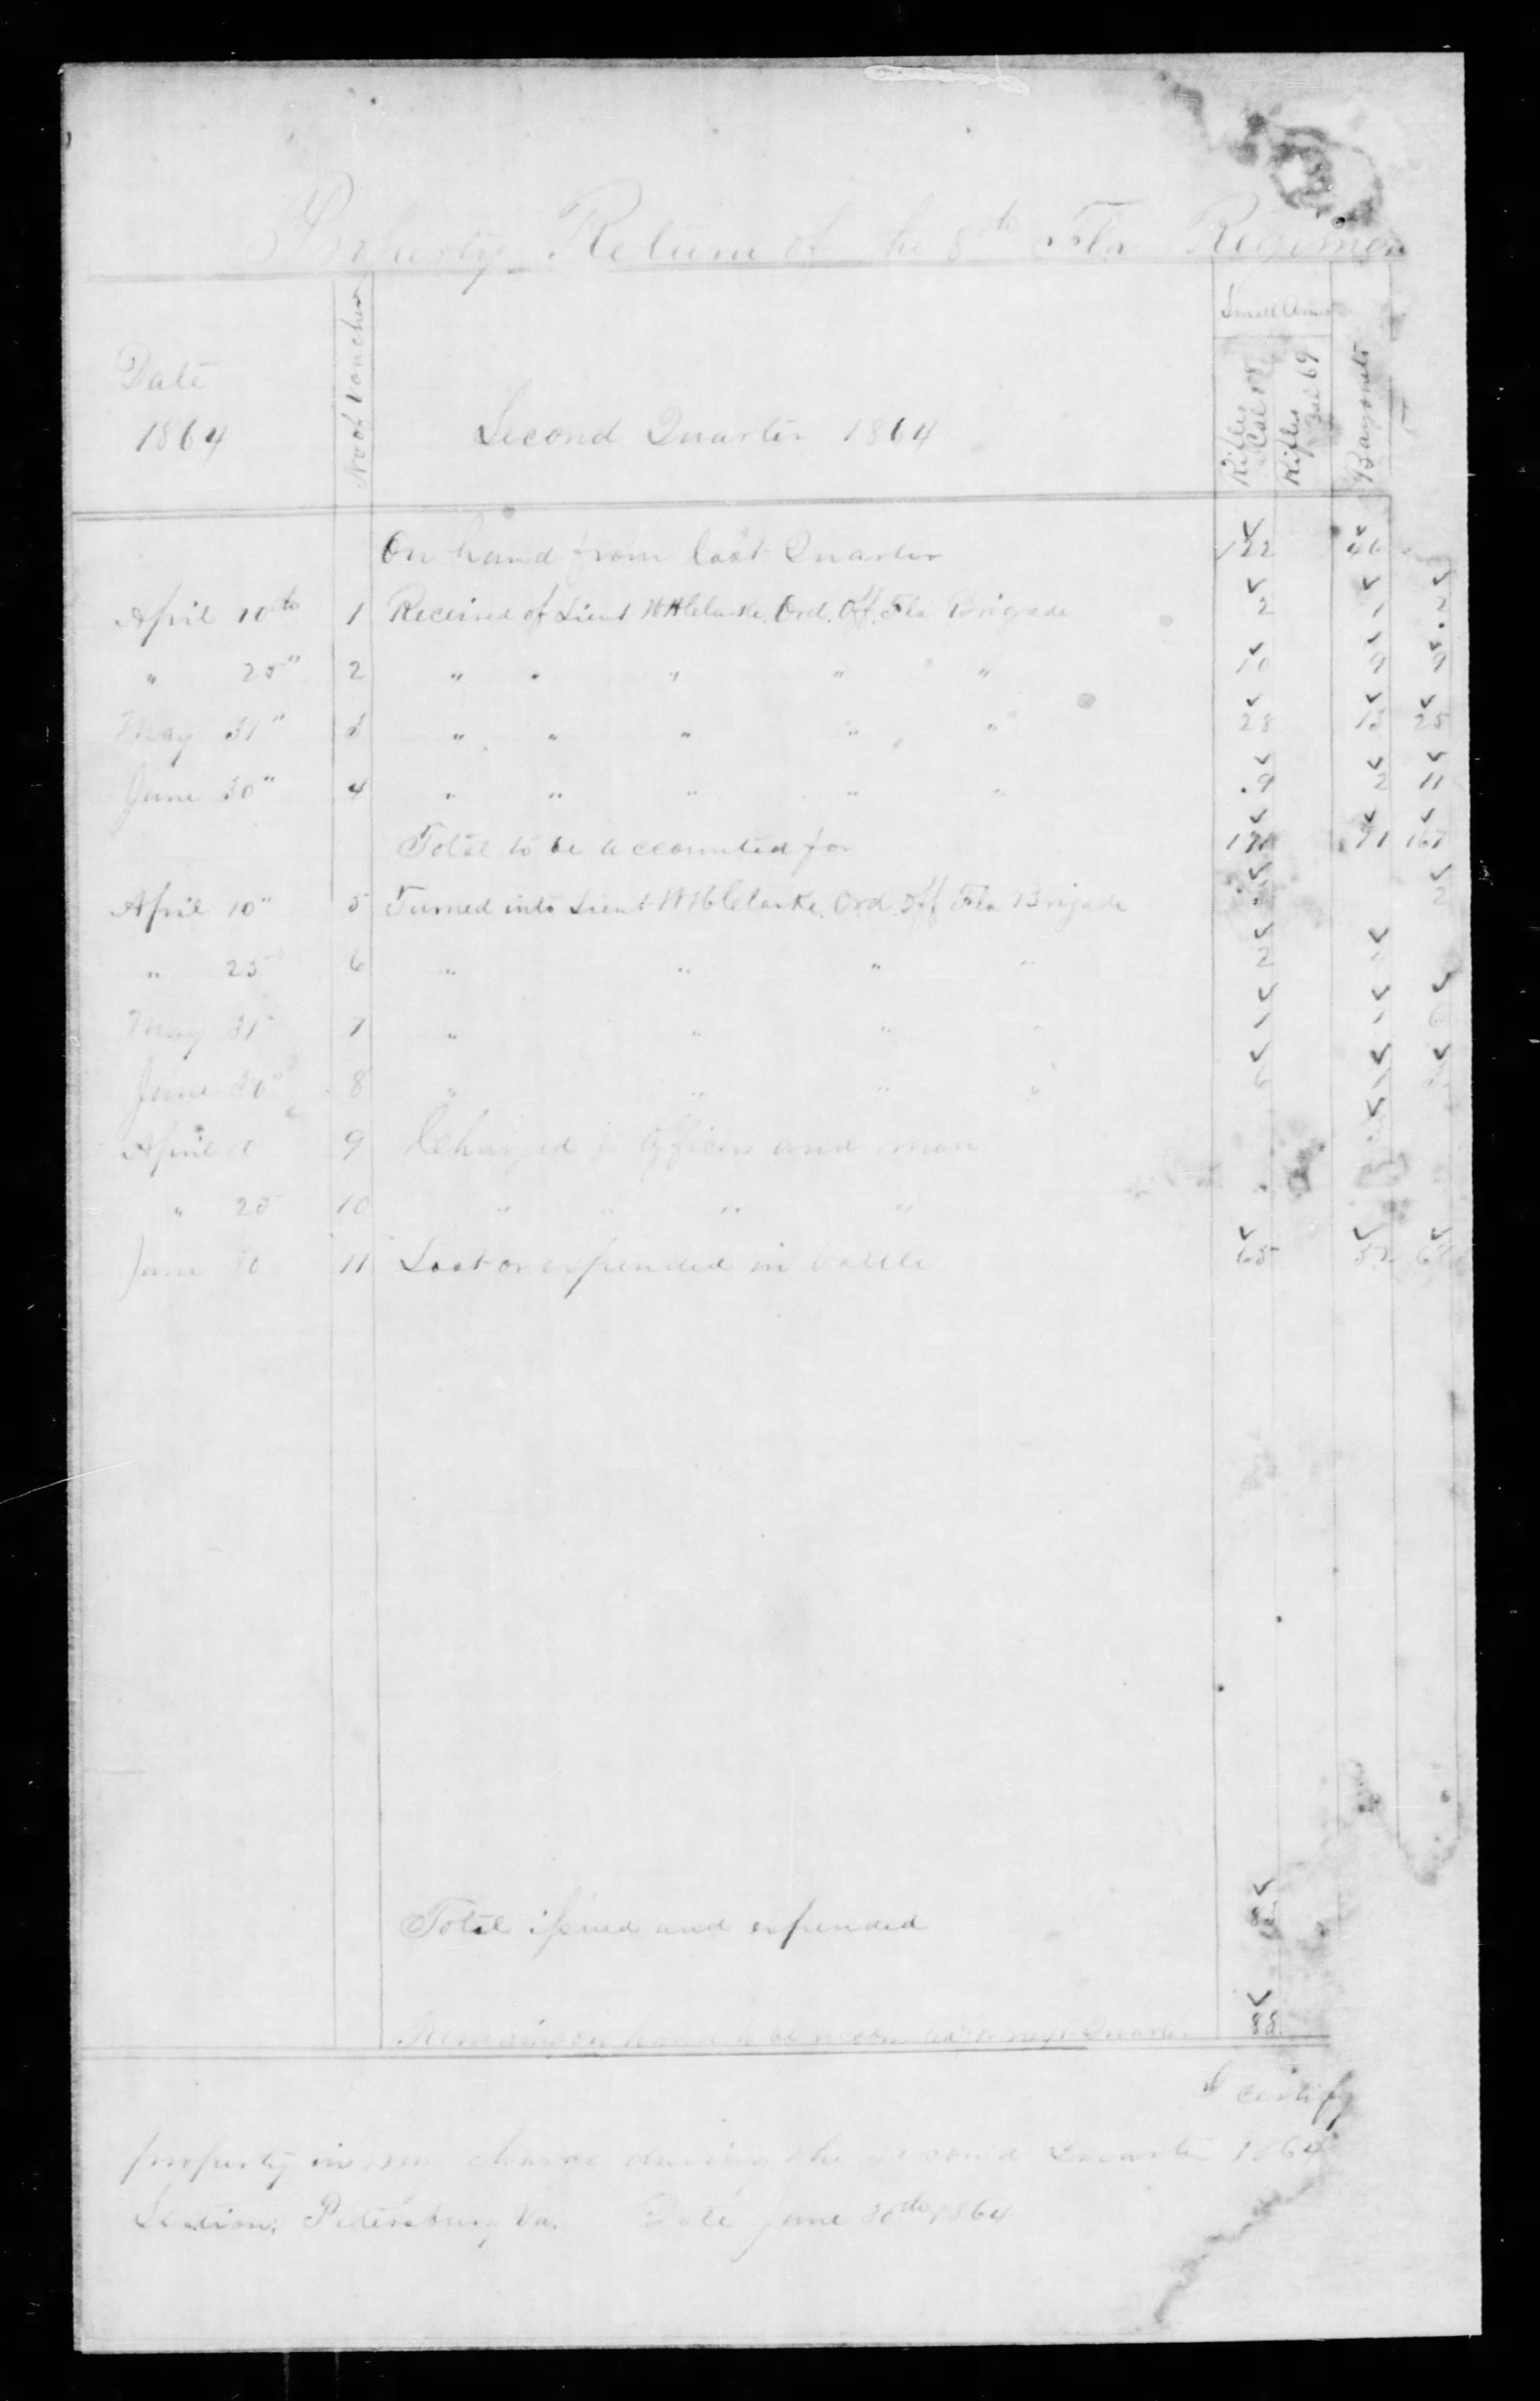 Property Return of the 8th Fla Regimen
Small Arms
Date
1864
No of Voucher
Second Quarter 1864
Rifles Cal 58
Rifles Cal 69
Bayonets
On hand from last Quarter 122 46
April 10th 1 Received of Lieut W H Clarke. Ord. Off. Fla Brigade 2 1 2
" 25" 2 " " " " " 10 9 9
May 31" 3 " " " " " 28 13 25
June 30" 4 " " " " " 9 2 11
Total to be accounted for 171 71 167
April 10" 5 Turned into Lieut W H Clarke. Ord. Off Fla Brigade 2
" 25 6 " " " " 2
May 31 7 " " " " 1 1 6
June 30" 8 " " " " 6 1
April 10 9 Charged to Officers and men
" 25 10 " " " "
June 30 11 Lost or expended in battle 65 52 68
Total issued and expended
Remaining on hand to be accounted for next Quarter 88
I certify
property in my charge during the second Quarter 1864
Station: Petersburg Va. Date June 30th 1864